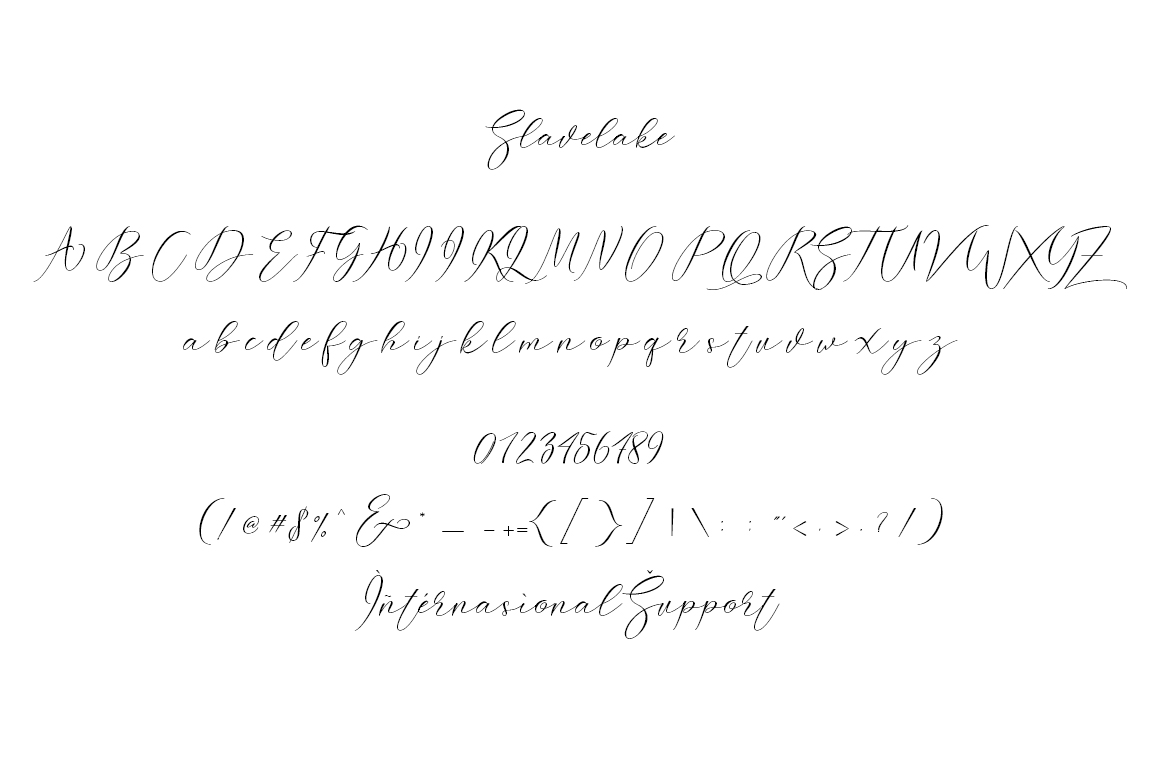 Slavelake
A B C D E F G H I J K L M N O P Q R S T U V W X Y Z
a b c d e f g h i j k l m n o p q r s t u v w x y z
0123456789
( / @ # $ % ^ & * _ - + = { [ } ] | \ : : " ' < . > . ? / )
Ìñtérnasional Šupport